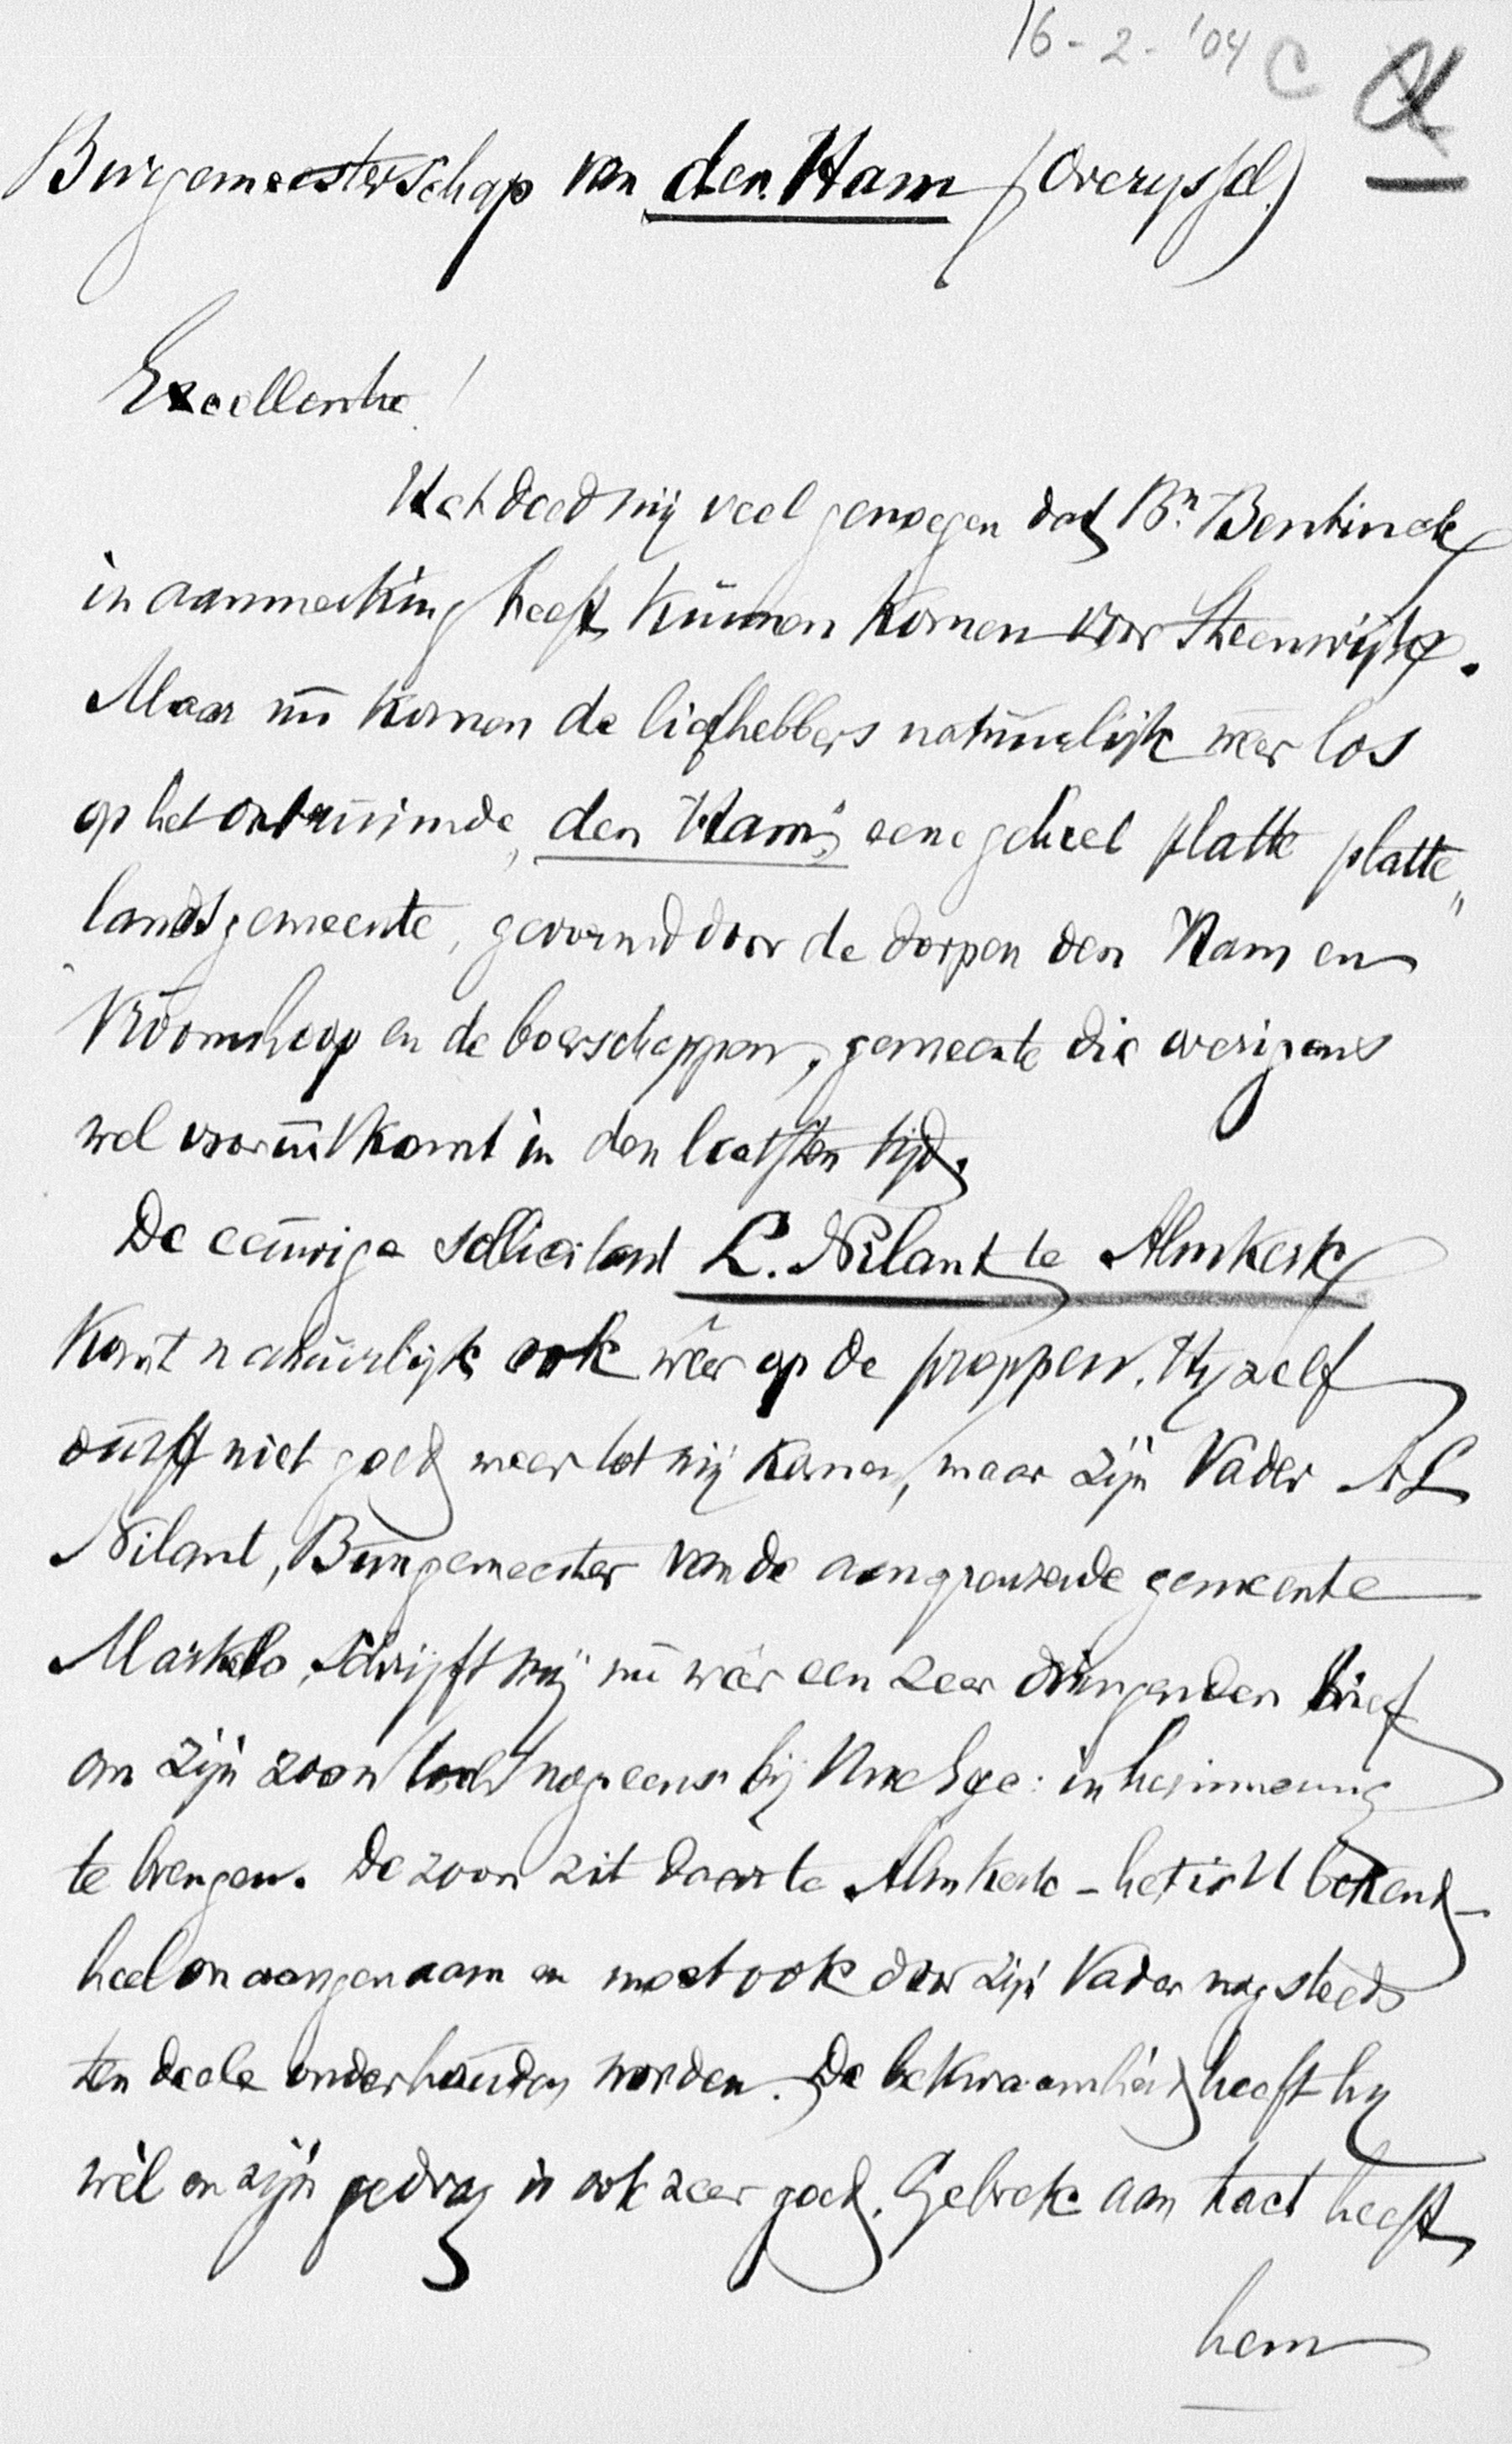 16-2-'04 C
Burgemeesterschap van den Ham (Overyssel.)
Excellentie!
Het doed mij veel genoegen dat Bn. Bentinck
in aanmerking heeft kunnen komen voor Steenwijk.
Maar nu komen de liefhebbers natuurlijk wêer los
op het ontruimde, den Ham, eene geheel platte platte„
landsgemeente, gevormd door de dorpen den Ham en
Vroomshoop en de boerschappen, gemeente die overigens
wel vooruitkomt in den laatsten tijd.
De eeuwige sollicitant L. Nilant te Almkerk
komt natuurlijk ook wêer op de proppen. Hy zelf
durft niet goed meer tot mij komen, maar zijn Vader AL
Nilant, Burgemeester van de aangrenzende gemeente
Markelo, schrijft mij nu wêer een zeer dringenden brief
om zijn zoon toch nog eens bij Uwe Exc: in herinnering
te brengen. De zoon zit daar te Almkerk - het is U bekend -
heel onaangenaam en moet ook door zijn Vader nog steeds
ten deele onderhouden worden. De bekwaamheid heeft hy
wèl en zijn gedrag is ook zeer goed. Gebrek aan tact heeft
hem